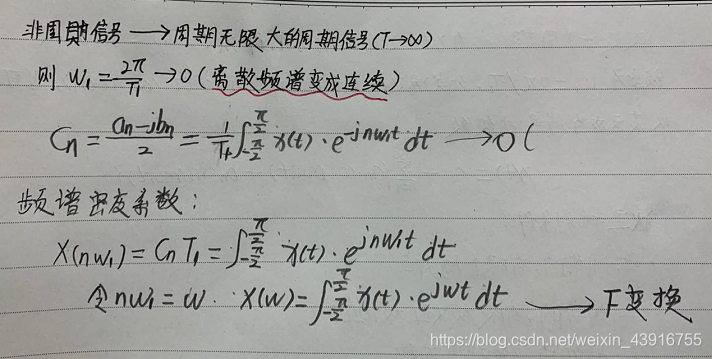 非周期信号 → 周期无限大的周期信号(T→∞)
则 W₁ = 2π/T₁ → 0 (离散频谱变成连续)
Cn = (an-jbn)/2 = 1/T₁ ∫_{-π/2}^{π/2} x(t)·e^{-jnw₁t} dt → 0 (
频谱密度系数:
X(nw₁) = Cn T₁ = ∫_{-π/2}^{π/2} x(t)·e^{jnw₁t} dt
令nw₁ = w. X(w) = ∫_{-π/2}^{π/2} x(t)·e^{jwt} dt → F变换
https://blog.csdn.net/weixin_43916755